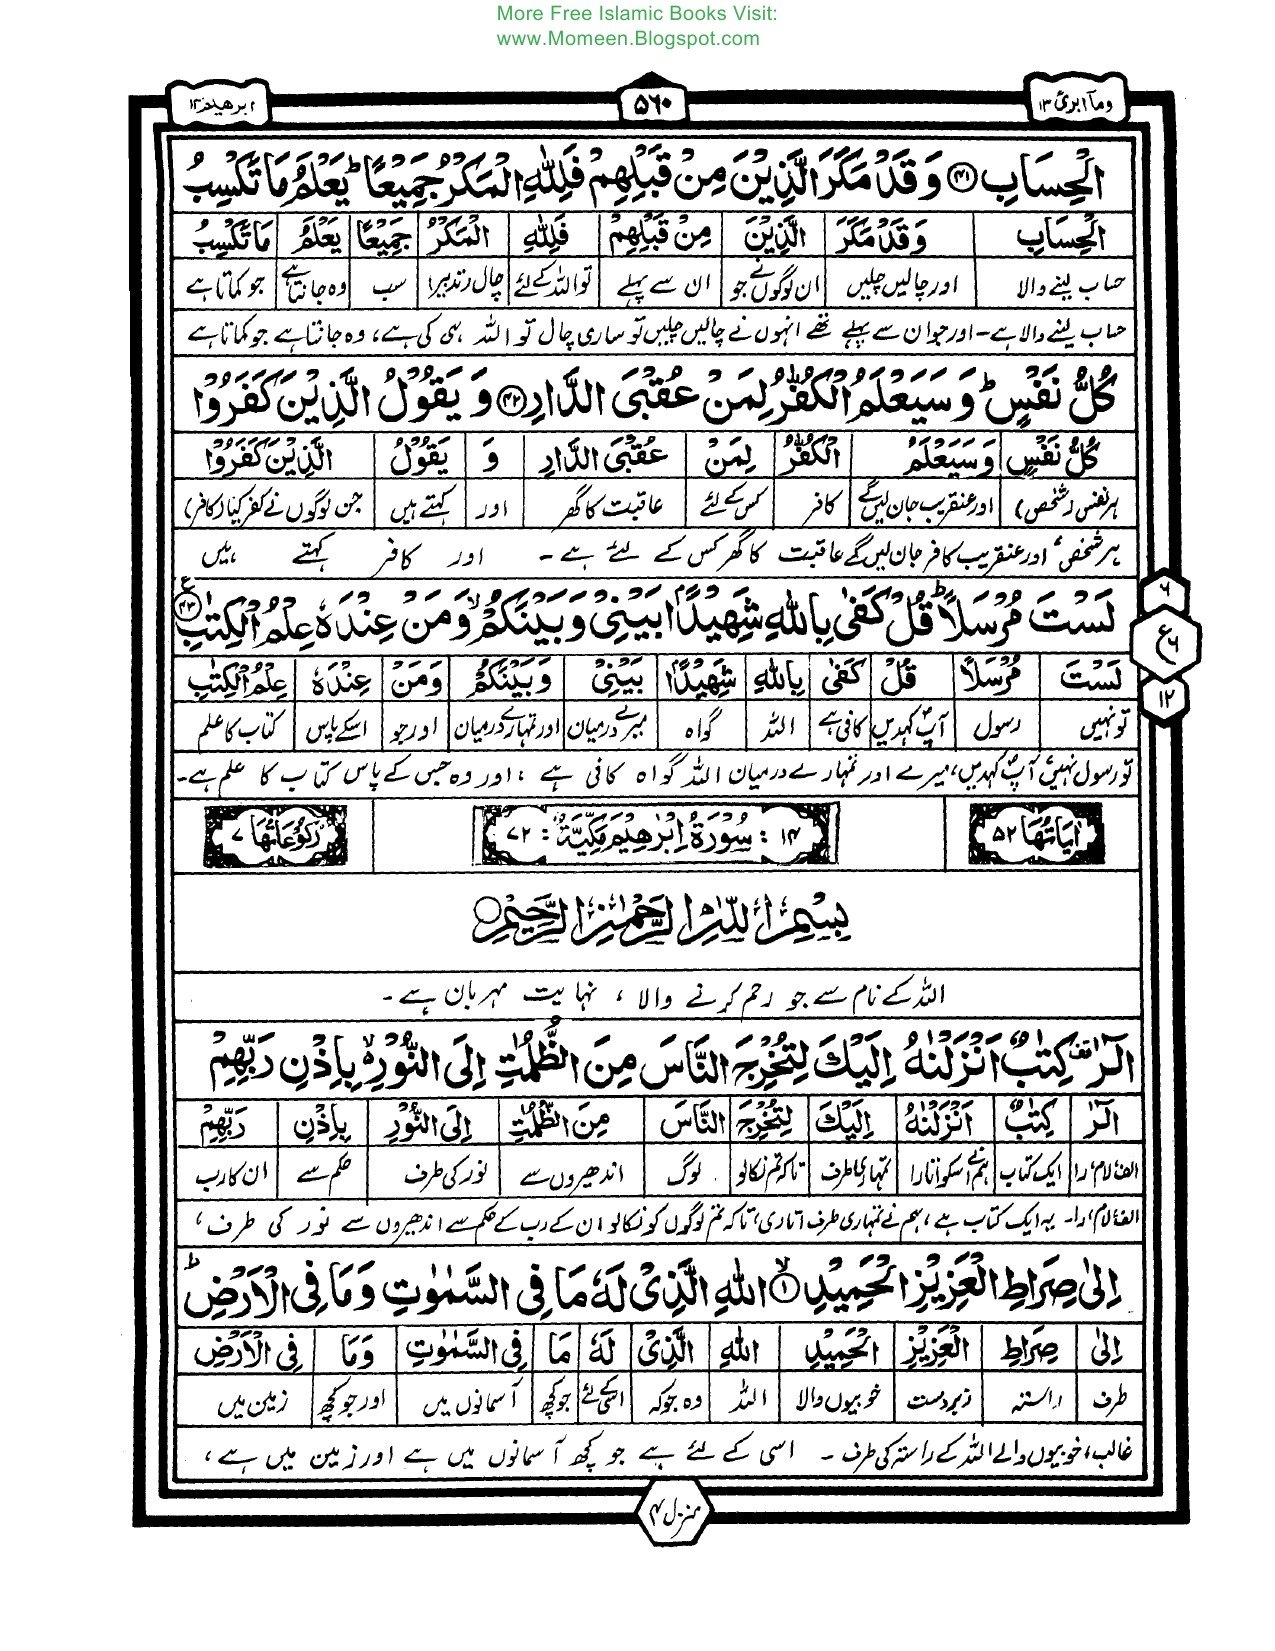 More Free Islamic Books Visit:
www.Momeen.Blogspot.com
وما ابرئ ۱۳
۵۶۰
ابرهیم ۱۴
الْحِسَابِ ﴿۴۱﴾ وَقَدْ مَكَرَ الَّذِيْنَ مِنْ قَبْلِهِمْ فَلِلّٰهِ الْمَكْرُ جَمِيْعًا ؕ يَعْلَمُ مَا تَكْسِبُ
الْحِسَابِ وَقَدْ مَكَرَ الَّذِيْنَ مِنْ قَبْلِهِمْ فَلِلّٰهِ الْمَكْرُ جَمِيْعًا يَعْلَمُ مَا تَكْسِبُ
حساب لینے والا اور چالیں چلیں ان لوگوں نے جو ان سے پہلے تو اللہ کے لئے چال (تدبیر) سب وہ جانتا ہے جو کماتا ہے
حساب لینے والا ہے۔ اور جو ان سے پہلے تھے انہوں نے چالیں چلیں تو ساری چال تو اللہ ہی کی ہے، وہ جانتا ہے جو کماتا ہے
كُلُّ نَفْسٍ ؕ وَسَيَعْلَمُ الْكُفّٰرُ لِمَنْ عُقْبَى الدَّارِ ﴿۴۲﴾ وَ يَقُوْلُ الَّذِيْنَ كَفَرُوْا
كُلُّ نَفْسٍ وَسَيَعْلَمُ الْكُفّٰرُ لِمَنْ عُقْبَى الدَّارِ وَ يَقُوْلُ الَّذِيْنَ كَفَرُوْا
ہر نفس (شخص) اور عنقریب جان لیں گے کافر کس کے لئے عاقبت کا گھر اور کہتے ہیں جن لوگوں نے کفر کیا (کافر)
ہر شخص، اور عنقریب کافر جان لیں گے عاقبت کا گھر کس کے لئے ہے۔ اور کافر کہتے ہیں
لَسْتَ مُرْسَلًا ؕ قُلْ كَفٰى بِاللّٰهِ شَهِيْدًۢا بَيْنِيْ وَبَيْنَكُمْ ۙ وَمَنْ عِنْدَهٗ عِلْمُ الْكِتٰبِ ﴿۴۳﴾ ع
۶
ع ۶
۱۲
لَسْتَ مُرْسَلًا قُلْ كَفٰى بِاللّٰهِ شَهِيْدًۢا بَيْنِيْ وَبَيْنَكُمْ وَمَنْ عِنْدَهٗ عِلْمُ الْكِتٰبِ
تو نہیں رسول آپؐ کہدیں کافی ہے اللہ گواہ میرے درمیان اور تمہارے درمیان اور جو اسکے پاس کتاب کا علم
تو رسول نہیں، آپؐ کہدیں، میرے اور تمہارے درمیان اللہ گواہ کافی ہے، اور وہ جس کے پاس کتاب کا علم ہے۔
اٰیَاتُهَا ۵۲
۱۴ : سُوْرَةُ اِبْرٰهِيْمَ مَكِّيَّةٌ : ۷۲
رُكُوْعَاتُهَا ۷
بِسْمِ اللّٰهِ الرَّحْمٰنِ الرَّحِيْمِ
اللہ کے نام سے جو رحم کرنے والا، نہایت مہربان ہے۔
الٓرٰ ۟ كِتٰبٌ اَنْزَلْنٰهُ اِلَيْكَ لِتُخْرِجَ النَّاسَ مِنَ الظُّلُمٰتِ اِلَى النُّوْرِ ۙ بِاِذْنِ رَبِّهِمْ
الٓرٰ كِتٰبٌ اَنْزَلْنٰهُ اِلَيْكَ لِتُخْرِجَ النَّاسَ مِنَ الظُّلُمٰتِ اِلَى النُّوْرِ بِاِذْنِ رَبِّهِمْ
الف لام را ایک کتاب ہم نے اسکو اتارا تمہاری طرف تاکہ تم نکالو لوگ اندھیروں سے نور کی طرف حکم سے ان کا رب
الف لام را۔ یہ ایک کتاب ہے، ہم نے تمہاری طرف اتاری، تاکہ تم لوگوں کو نکالو ان کے رب کے حکم سے اندھیروں سے نور کی طرف،
اِلٰى صِرَاطِ الْعَزِيْزِ الْحَمِيْدِ ﴿۱﴾ ۙ اللّٰهِ الَّذِيْ لَهٗ مَا فِي السَّمٰوٰتِ وَمَا فِي الْاَرْضِ ؕ
اِلٰى صِرَاطِ الْعَزِيْزِ الْحَمِيْدِ اللّٰهِ الَّذِيْ لَهٗ مَا فِي السَّمٰوٰتِ وَمَا فِي الْاَرْضِ
طرف راستہ زبردست خوبیوں والا اللہ وہ جو کہ اسکے لئے جو کچھ آسمانوں میں اور جو کچھ زمین میں
غالب، خوبیوں والے اللہ کے راستہ کی طرف۔ اسی کے لئے ہے جو کچھ آسمانوں میں ہے اور زمین میں ہے،
منزل ۳